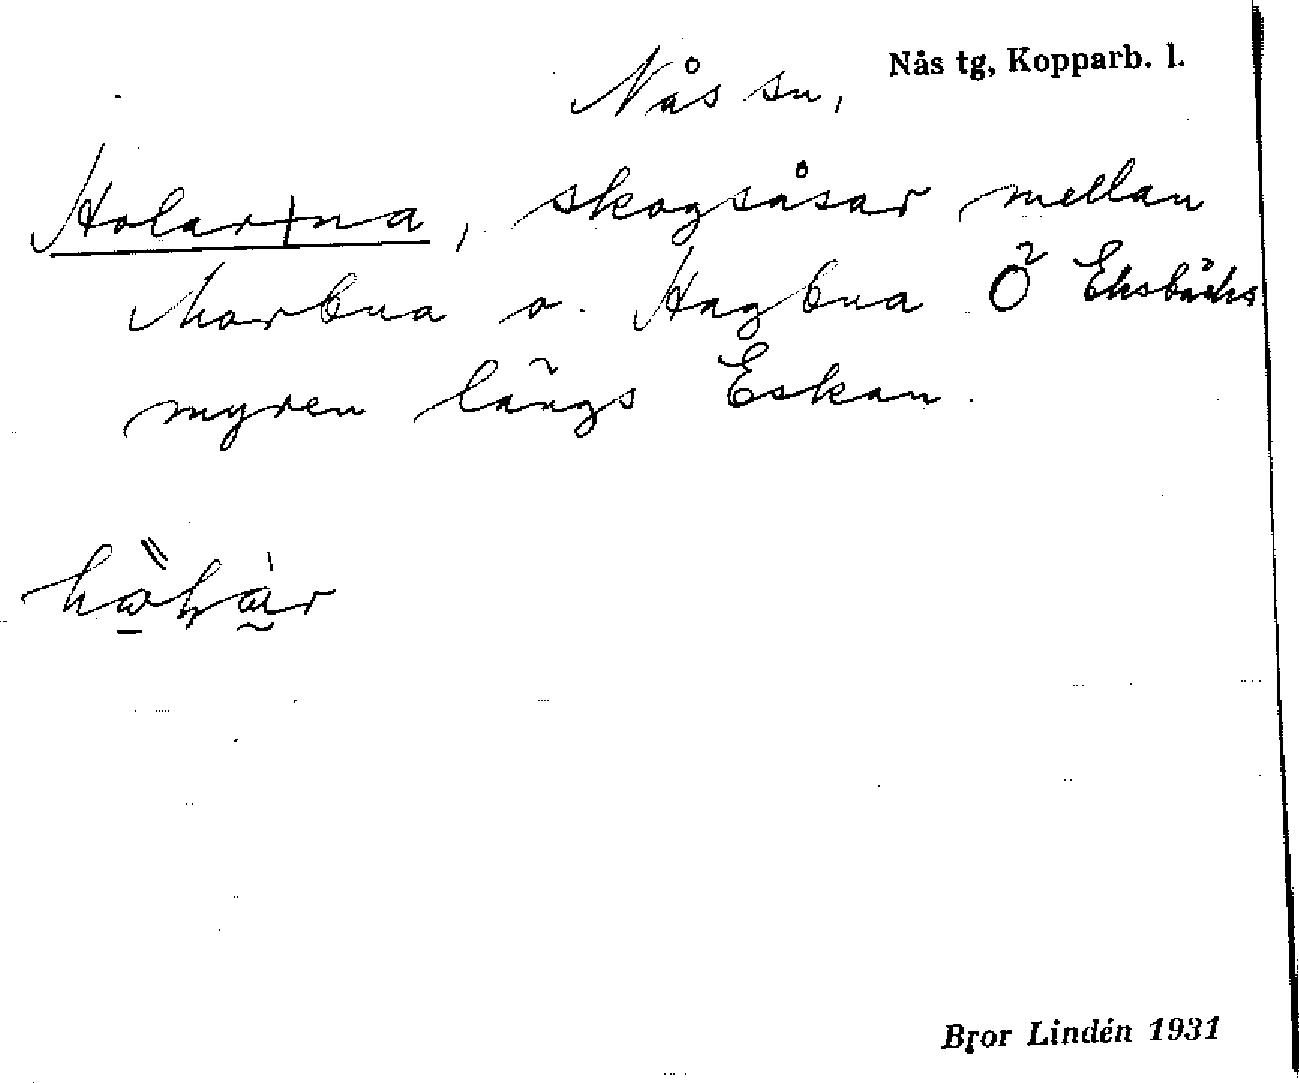 Nås tg, Kopparb. l.
Nås sn,
Holar+na, skogsåsar mellan
Morbua o. Hagbua Ö Eksbäcks
myren längs Eskan.
Bror Lindén 1931